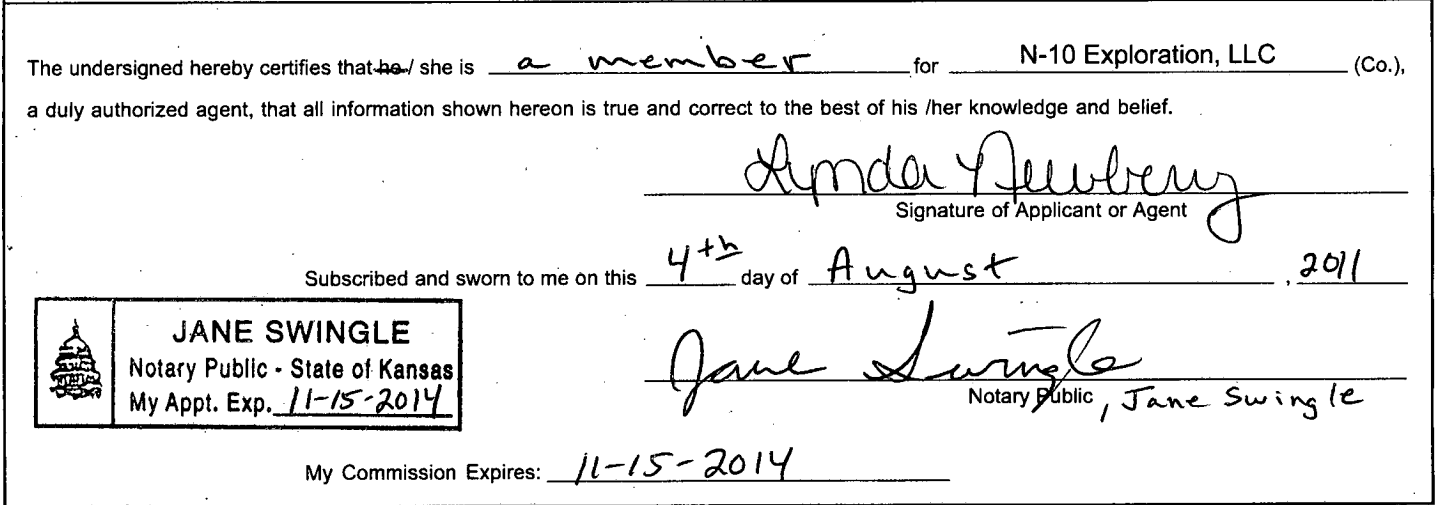 The undersigned hereby certifies that he / she is a member for N-10 Exploration, LLC (Co.),
a duly authorized agent, that all information shown hereon is true and correct to the best of his /her knowledge and belief.
Lynda Newberry
Signature of Applicant or Agent
Subscribed and sworn to me on this 4th day of August , 2011
JANE SWINGLE
Notary Public - State of Kansas
My Appt. Exp. 11-15-2014
Jane Swingle
Notary Public , Jane Swingle
My Commission Expires: 11-15-2014